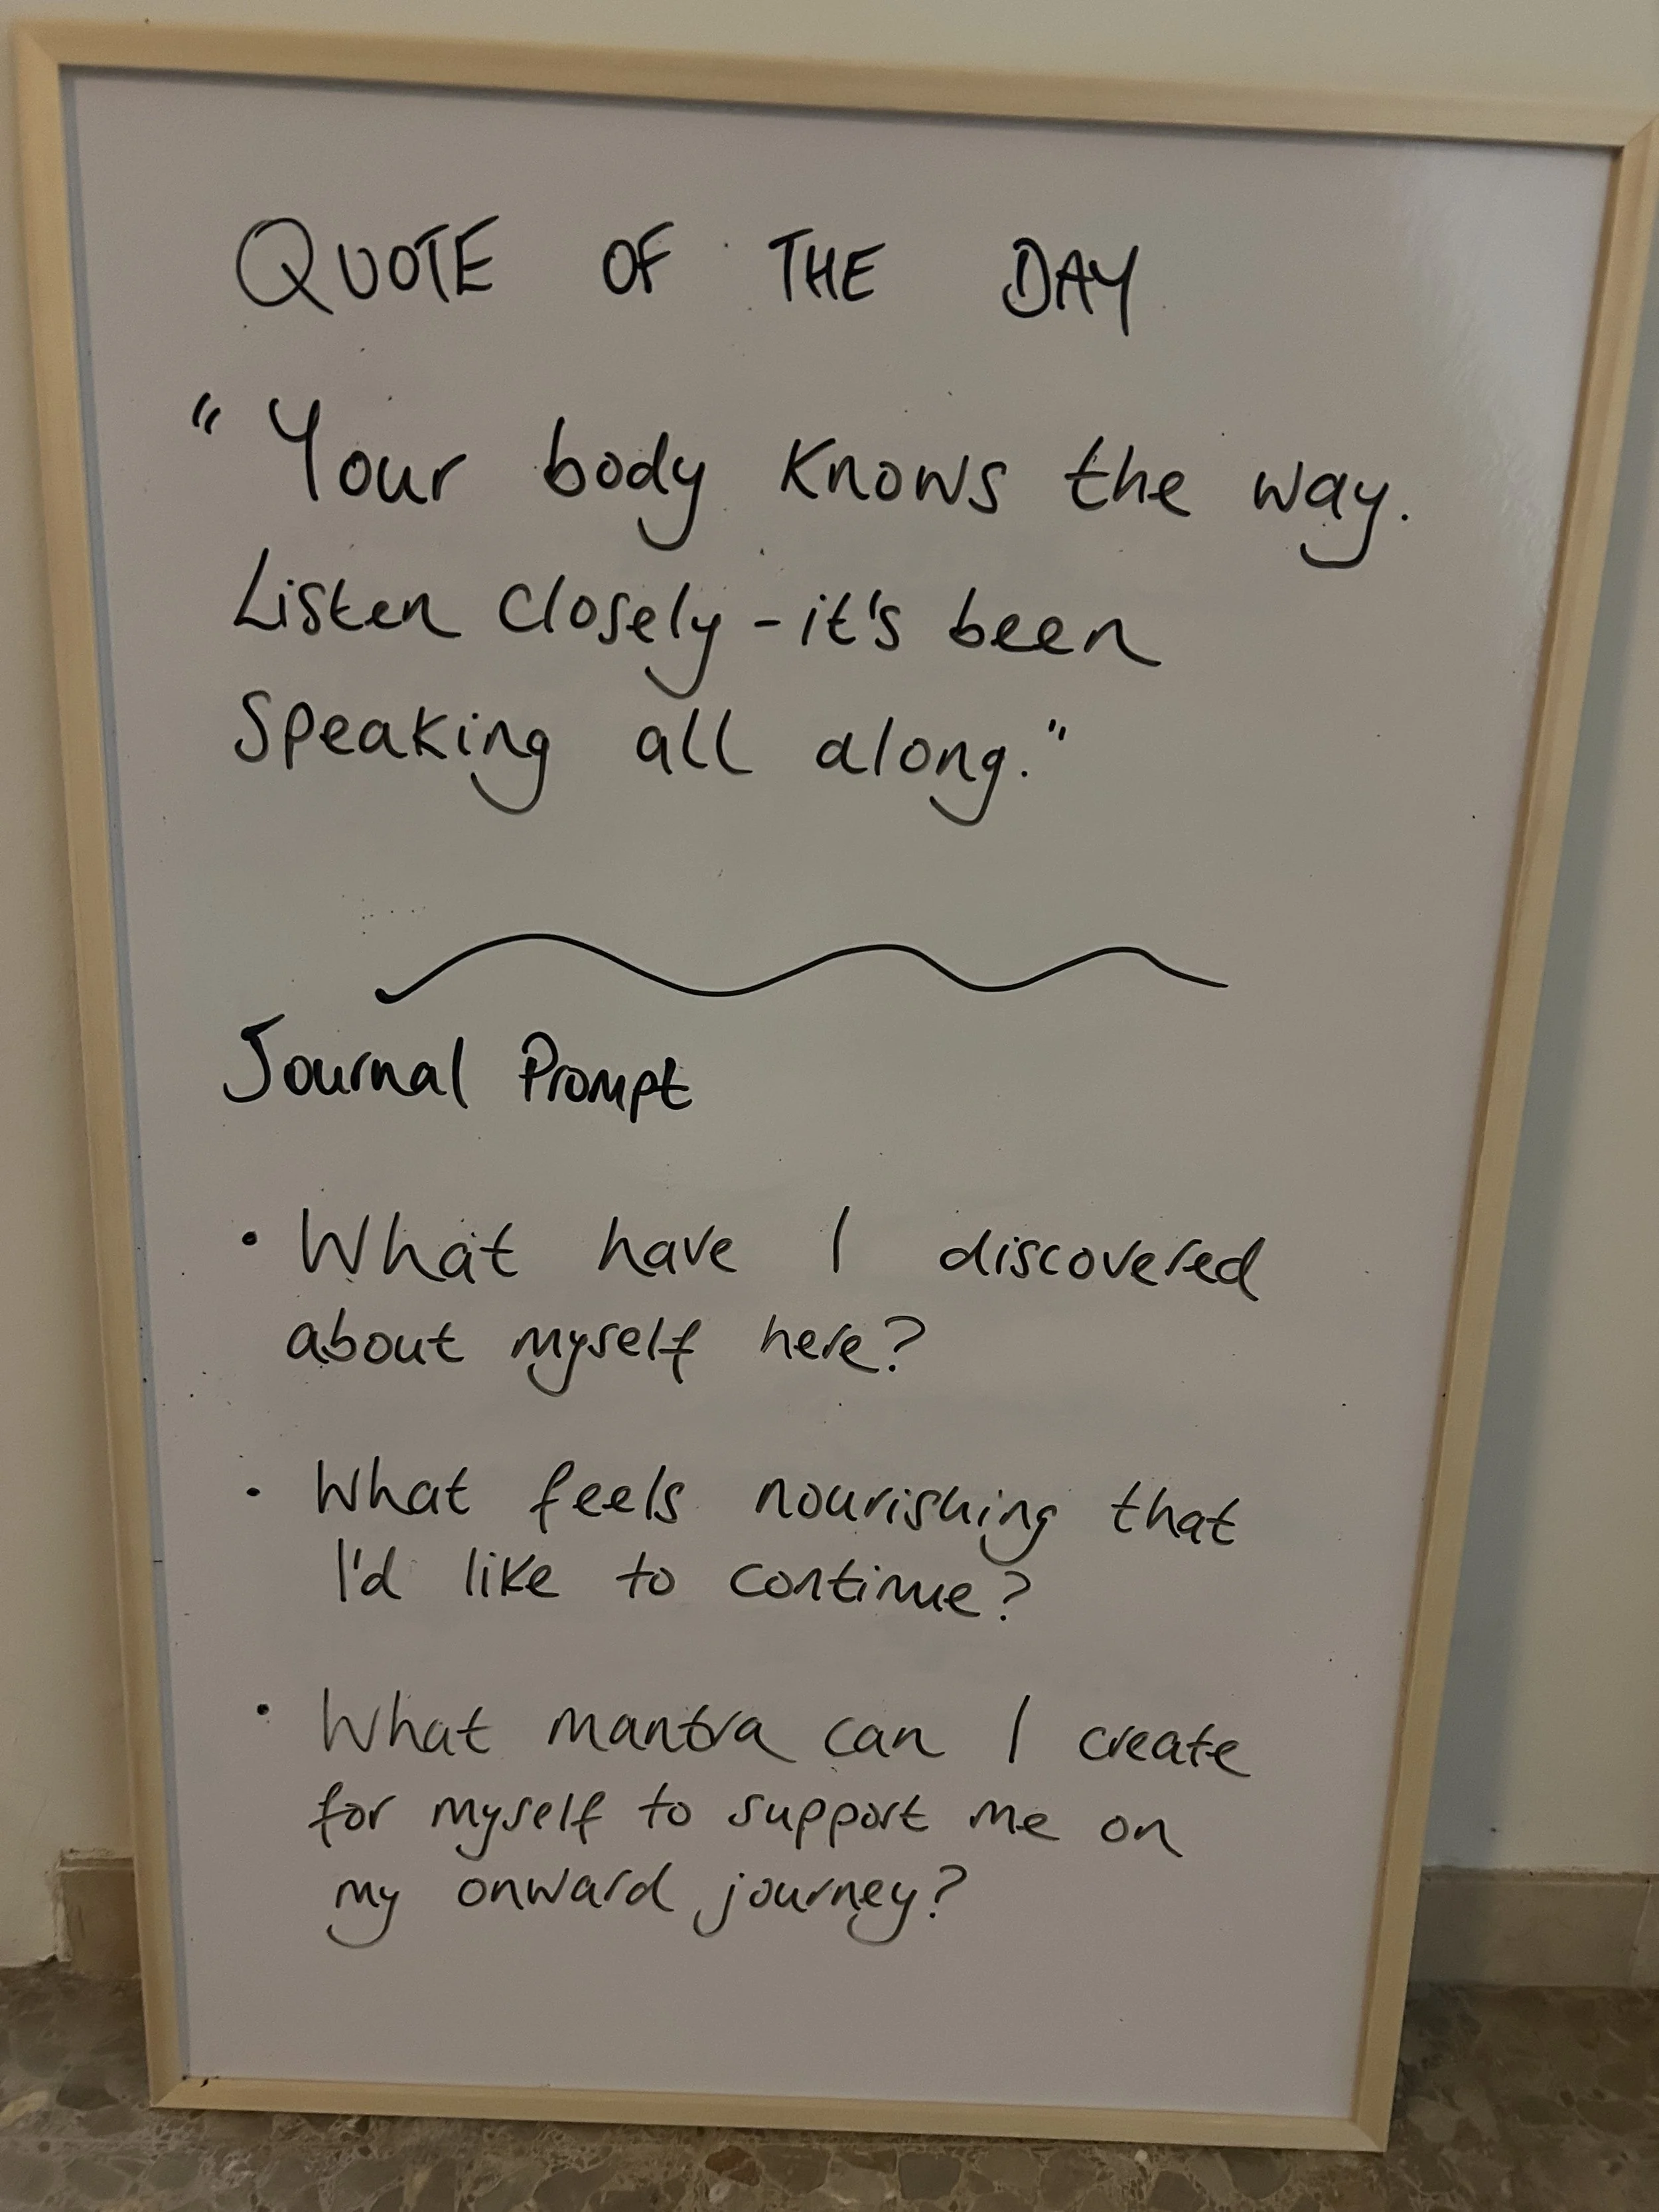 QUOTE OF THE DAY
"Your body knows the way.
Listen closely - it's been
speaking all along."
Journal Prompt
• What have I discovered
about myself here?
• What feels nourishing that
I'd like to continue?
• What mantra can I create
for myself to support me on
my onward journey?